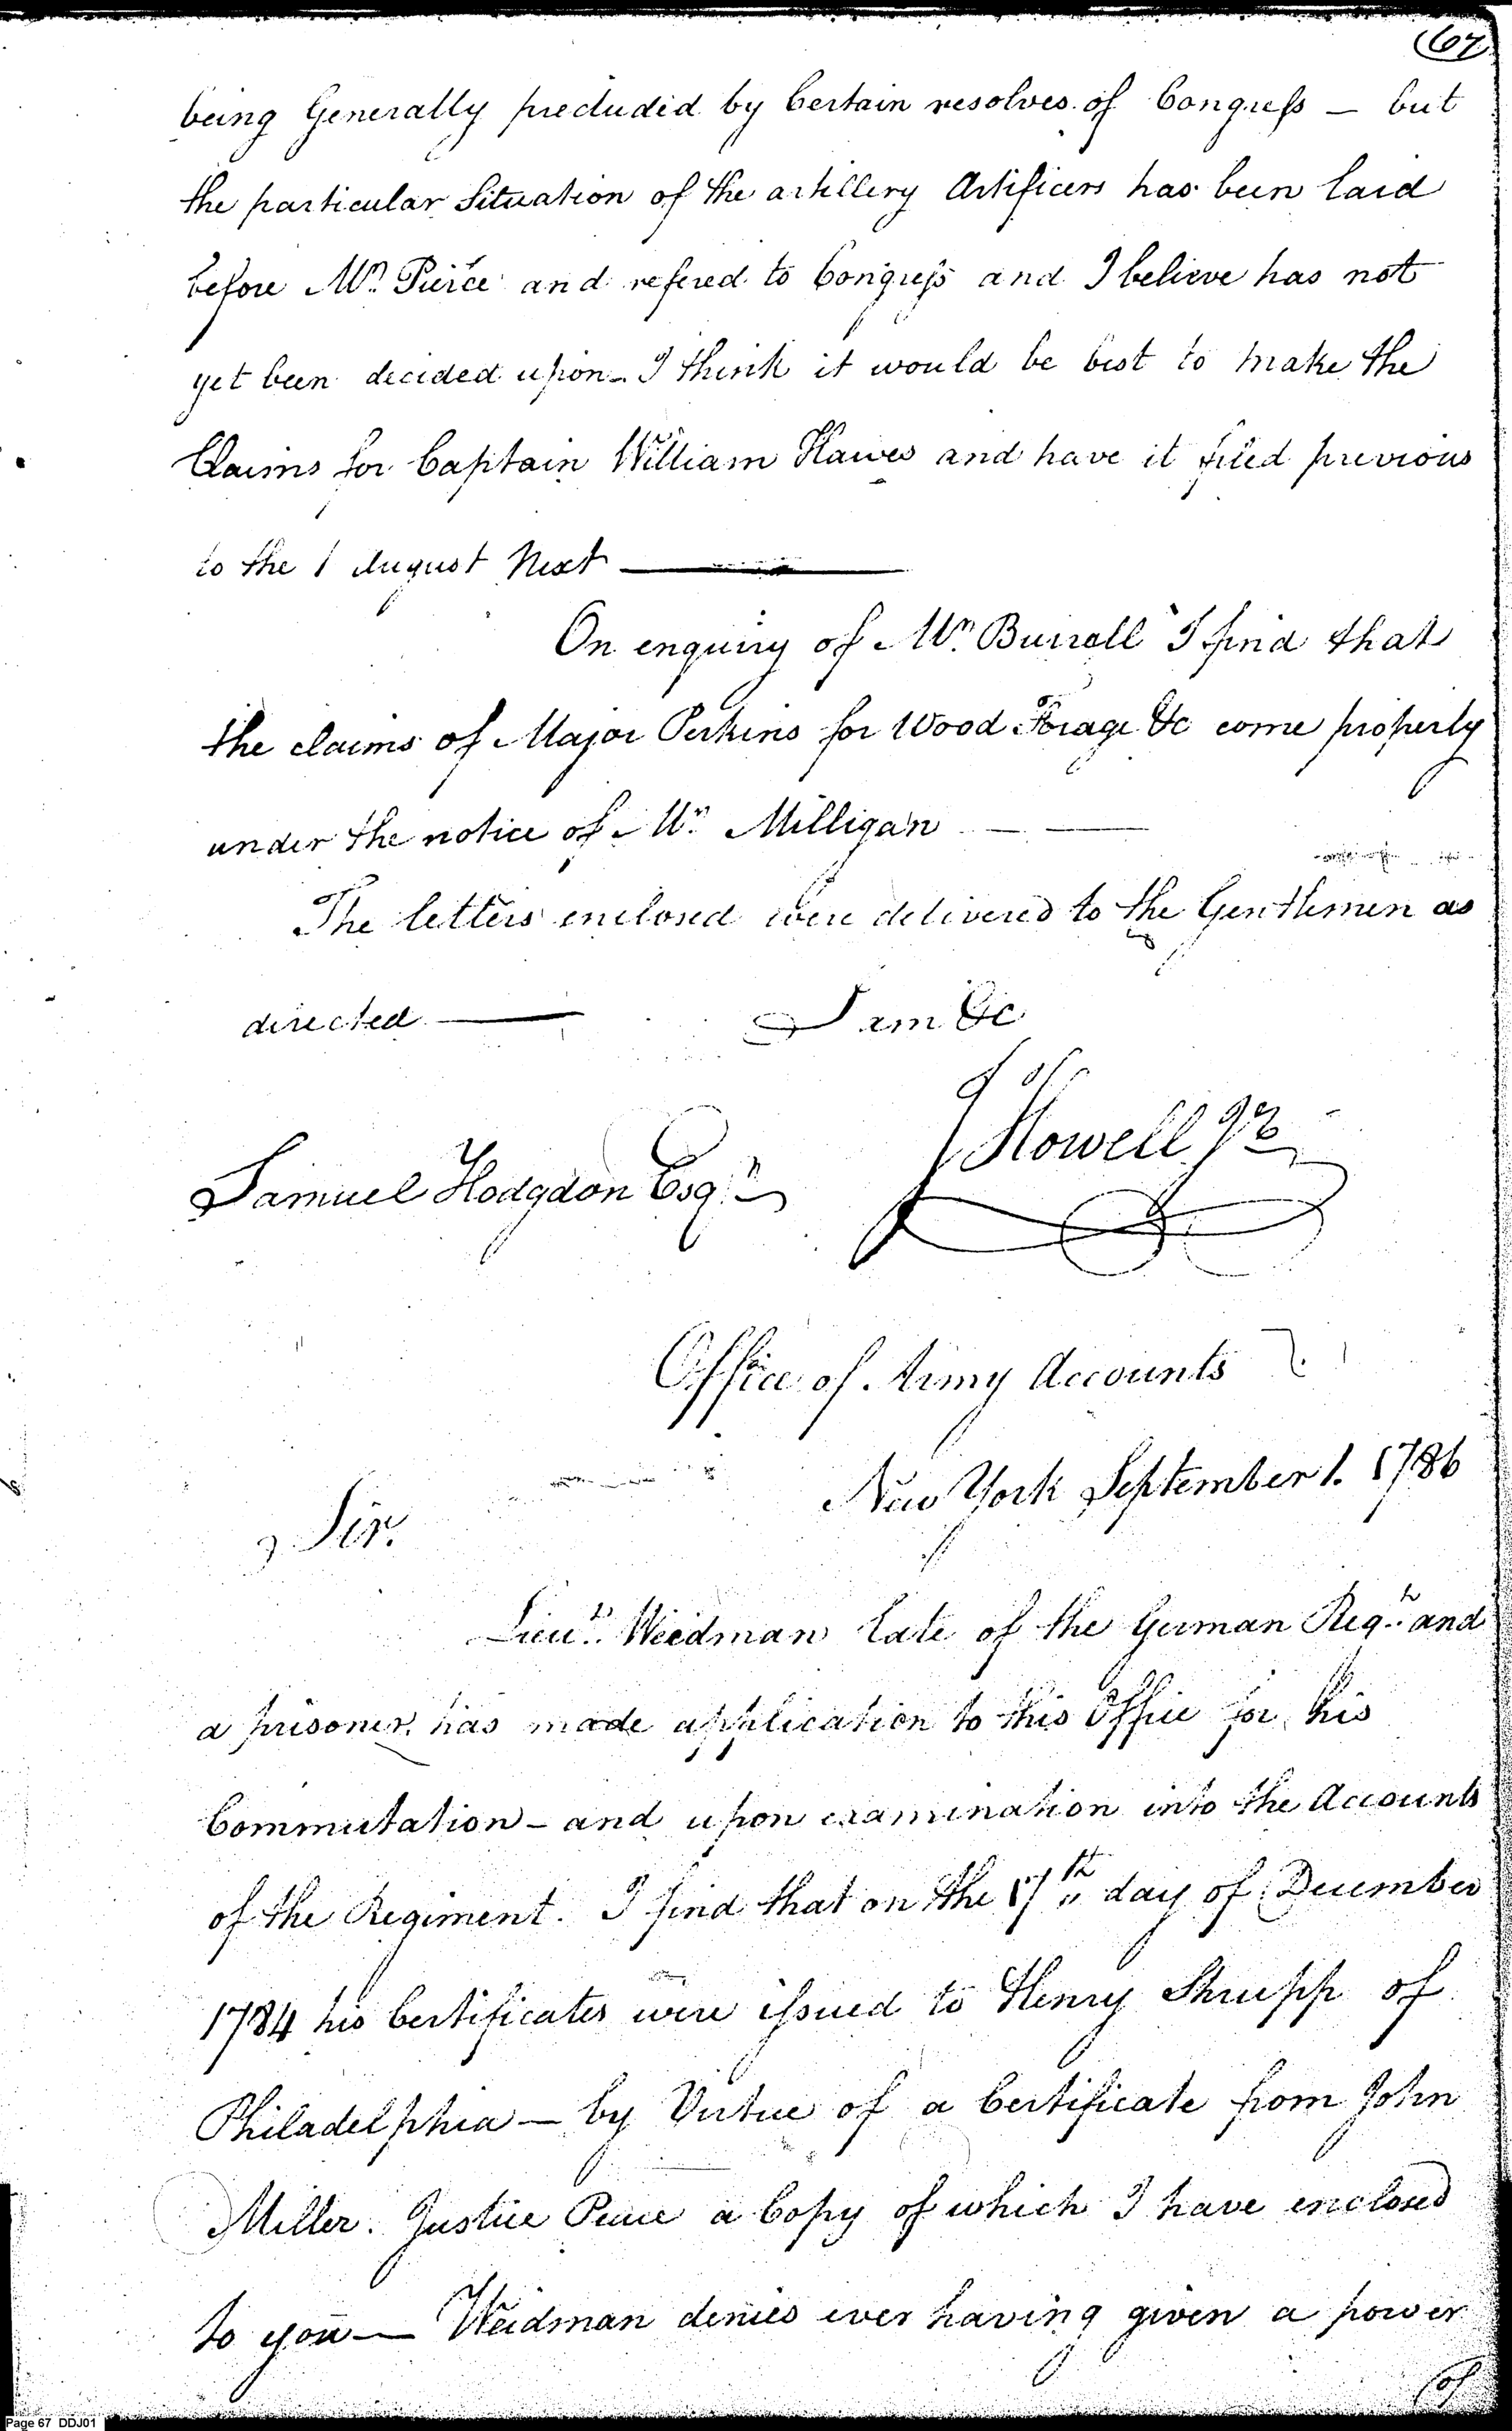 (67)
being Generally precluded by Certain resolves of Congress – but
the particular Situation of the artillery Artificers has been laid
before Mr. Pierce and refered to Congress and I believe has not
yet been decided upon – I think it would be best to make the
Claims for Captain William Hawes and have it filed previous
to the 1 August Next —
On enquiry of Mr. Burrall I find that
the claims of Major Perkins for Wood Forage &c come properly
under the notice of Mr. Milligan — —
The letters enclosed were delivered to the Gentlemen as
directed — I am &c
J Howell Jr
Samuel Hodgdon Esqr.
Office of Army Accounts
New York September 1. 1786
Sir.
Lieut. Weidman late of the German Regt. and
a prisoner, has made application to this Office for his
Commutation – and upon examination into the Accounts
of the Regiment. I find that on the 17th day of December
1784 his Certificates were issued to Henry Shrupp of
Philadelphia — by Virtue of a Certificate from John
Miller. Justice Peace a Copy of which I have enclosed
to you — Weidman denies ever having given a power
of
Page 67 DDJ01